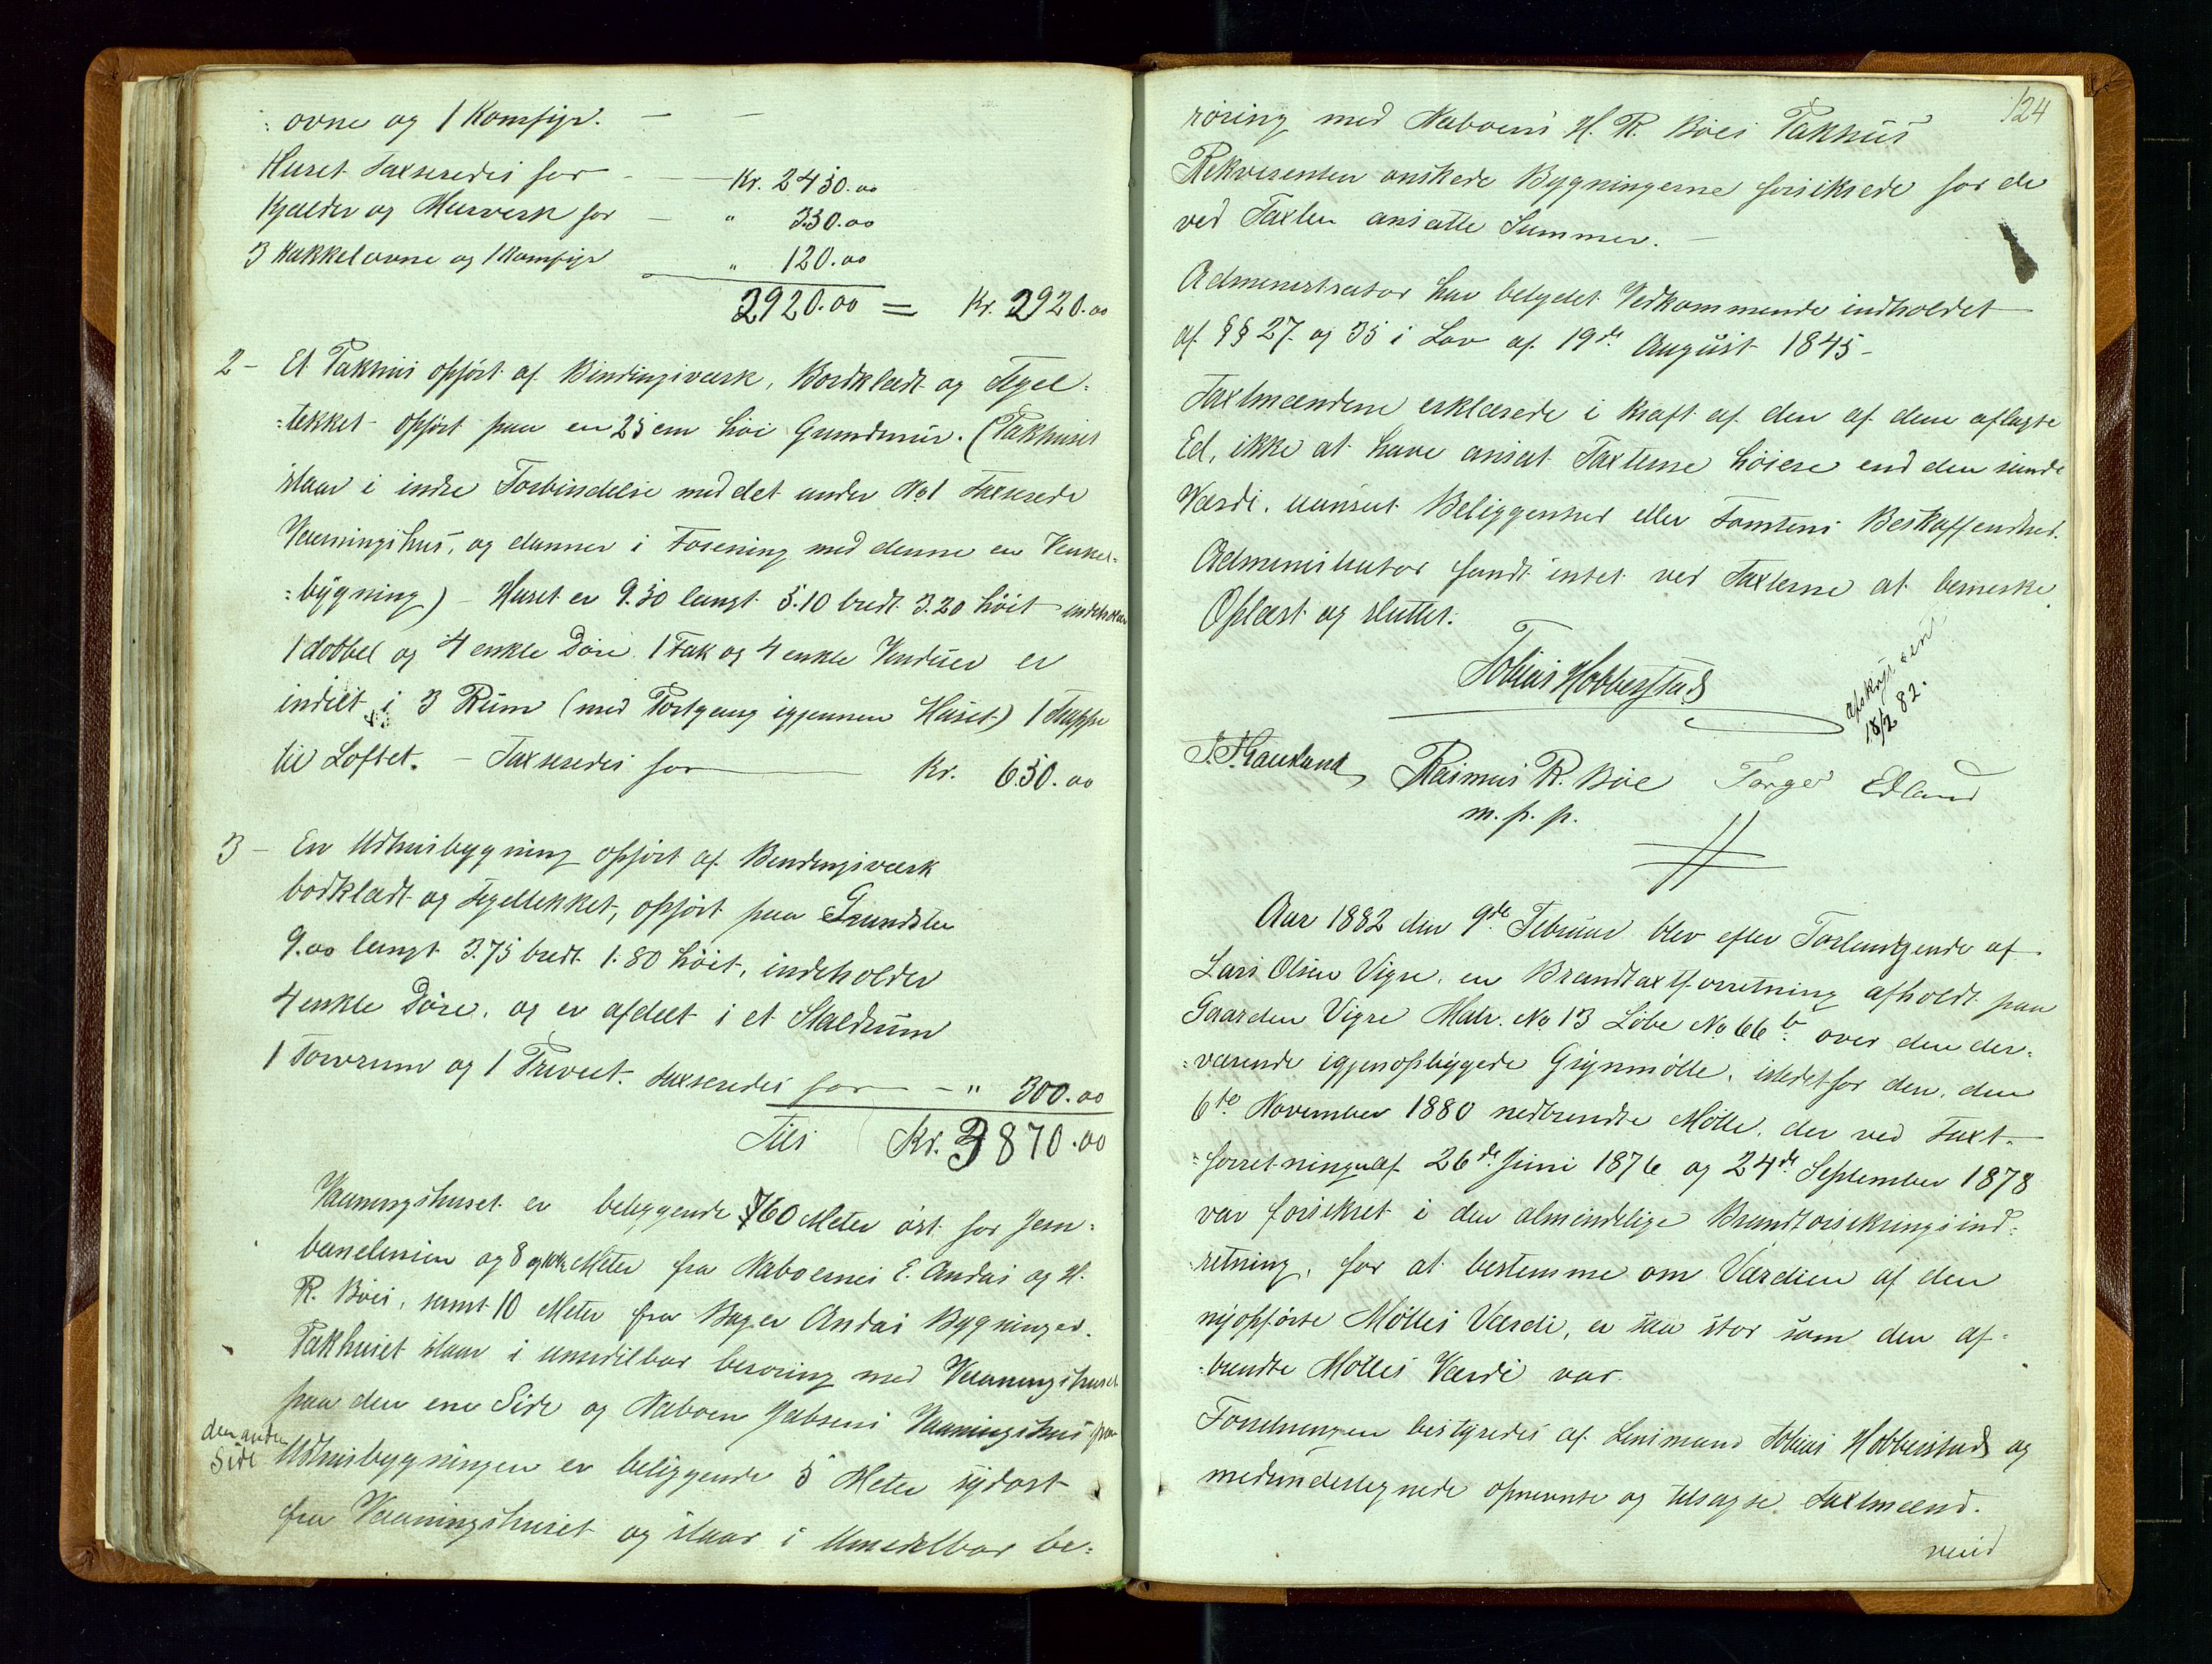 :ovne og 1 Komfyr. — —
Huset Taxseredes for — — Kr. 2450.00
Kjælder og Murverk for — " 350.00
3 Kakkelovne og 1 Komfyr " 120.00
2920.00 = Kr. 2920.00
2 - Et Pakhus opført af Bindingsværk, Bordklædt og Tegel:
:tækket opført paa en 25 cm høi Grundmur. (Pakhuset
staar i indre Forbindelse med det under No 1 Taxserede
Vaaningshus, og danner i Forening med denne en Vinkel:
:bygning) - Huset er 9.30 langt 5.10 bredt 3.20 høit indeholder
1 dobbel og 4 enkle Døre 1 Fak og 4 enkle Vinduer er
indelt i 3 Rum (med Portgang igjennem Huset) 1 Trappe
til Loftet. - Taxseredes for — Kr. 650.00
3 - En Udhusbygning opført af Bindingsværk
bordklædt og tegeltækket, opført paa Grundsten
9.00 langt 3.75 bredt 1.80 høit, indeholder
4 enkle Døre, og er afdelt i et Staldrum
1 Torvrum og 1 Privet. Taxseredes for — - " 300.00
Tils Kr. 3870.00
Vaaningshuset er beliggende 760 Meter øst for Jern:
banelinien og 8 Meter fra Naboernes E. Andas og H.
R. Bøes, samt 10 Meter fra Bager Andas Bygninger.
Pakhuset staar i umidelbar berøring med Vaaningshuset
paa den ene Side og Naboen Jabsens Vaaningshus paa
den anden
Side
Udhusbygningen er beliggende 5 Meter sydost
fra Vaaningshuset og staar i Umidelbar be:
124
røring med Naboens H. R. Bøes Pakhus
Rekvirenten ønskede Bygningerne forsikrede for de
ved Taxten ansatte Summer. —
Administrator har betydet Vedkommende indholdet
af §§ 27 og 35 i Lov af 19de August 1845 -
Taxtmændene erklærede i Kraft af den af dem aflagte
Ed, ikke at have ansat Taxterne høiere end den sande
Værdi, uanset Beliggenhed eller Tomtens Beskaffenhed.
Administrator fandt intet ved Taxterne at bemerke
Oplæst og sluttet.
Tobias Hobberstad
afskrift sent
18/2 82.
Rasmus R. Bøe Torger Edland
m. p. p.
Aar 1882 den 9de Februar blev efter Forlangende af
Lars Olsen Vigre, en Brandtaxtforretning afholdt paa
Gaarden Vigre Matr. No 13 Løbe No 66 b over den der:
:værende igjenopbyggede Grynmølle, istedetfor den, den
6te November 1880 nedbrendte Mølle, der ved Taxt:
:forretninger af 26de Juni 1876 og 24de September 1878
var forsikret i den almindelige Brandforsikringsind:
:retning, for at bestemme om Værdien af den
nyopførte Mølles Værdi, er saa stor som den af:
:brændte Mølles Værdi var.
Forretningen bestyredes af Lensmand Tobias Hobberstad og
medundertegnede opnevnte og tilsagte Taxtmænd.